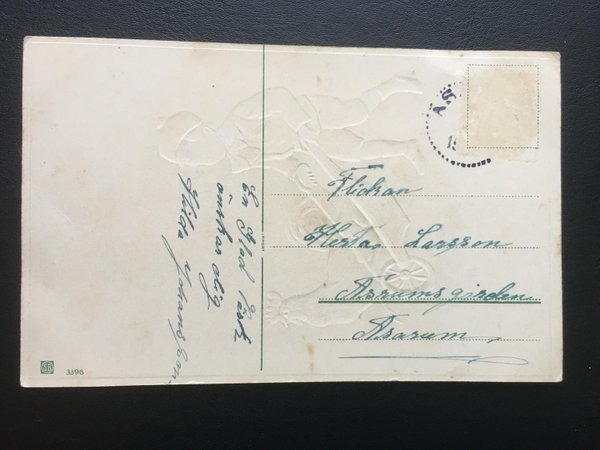 En Glad Påsk
önskas dig
Hilda Johansson
Flickan
Herta Larsson
Asarumsgården
Asarum
A.S
1
3396